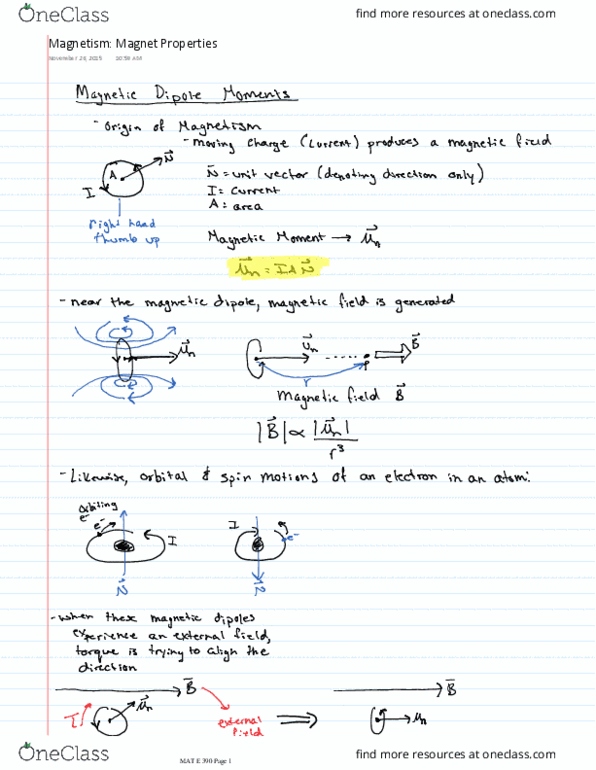 OneClass
find more resources at oneclass.com
Magnetism: Magnet Properties
November 26, 2015 10:59 AM
Magnetic Dipole Moments
- Origin of Magnetism
- moving charge (current) produces a magnetic field
A N⃗
I
N⃗ = unit vector (denoting direction only)
I = Current
A: area
right hand
thumb up
Magnetic Moment → μ⃗m
μ⃗m = IAN⃗
- near the magnetic dipole, magnetic field is generated
μ⃗m
μ⃗m ..... P B⃗
r
Magnetic field B⃗
|B⃗| ∝ |μ⃗m|
r³
- Likewise, orbital & spin motions of an electron in an atom:
orbiting
e⁻
e⁻ I
I e⁻
N⃗ N⃗
- when these magnetic dipoles
experience an external field,
torque is trying to align the
direction
B⃗ B⃗
τ μ⃗m
external
field
⇒ μm
OneClass
MAT E 390 Page 1
find more resources at oneclass.com